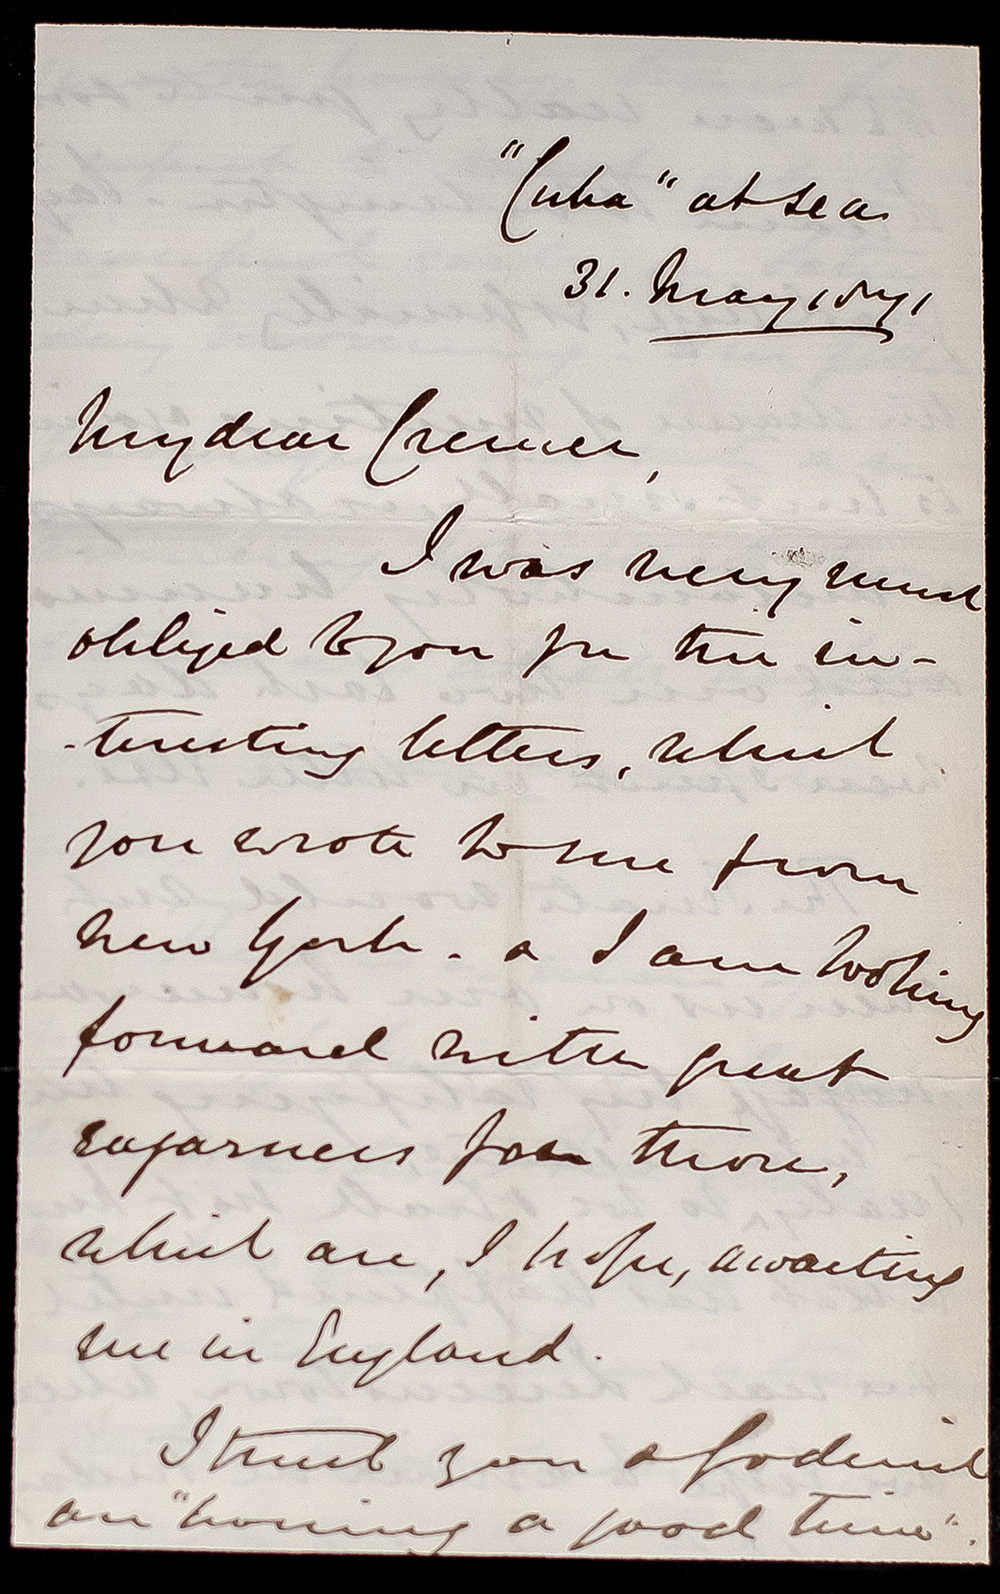 "Cuba" at sea
31. May 1871
My dear Cremer,
I was very much
obliged to you for the in-
-teresting letters, which
you wrote to me from
New York. & I am looking
forward with great
eagarness for those,
which are, I hope, awaiting
me in England.
I trust you &
are "having a good time".